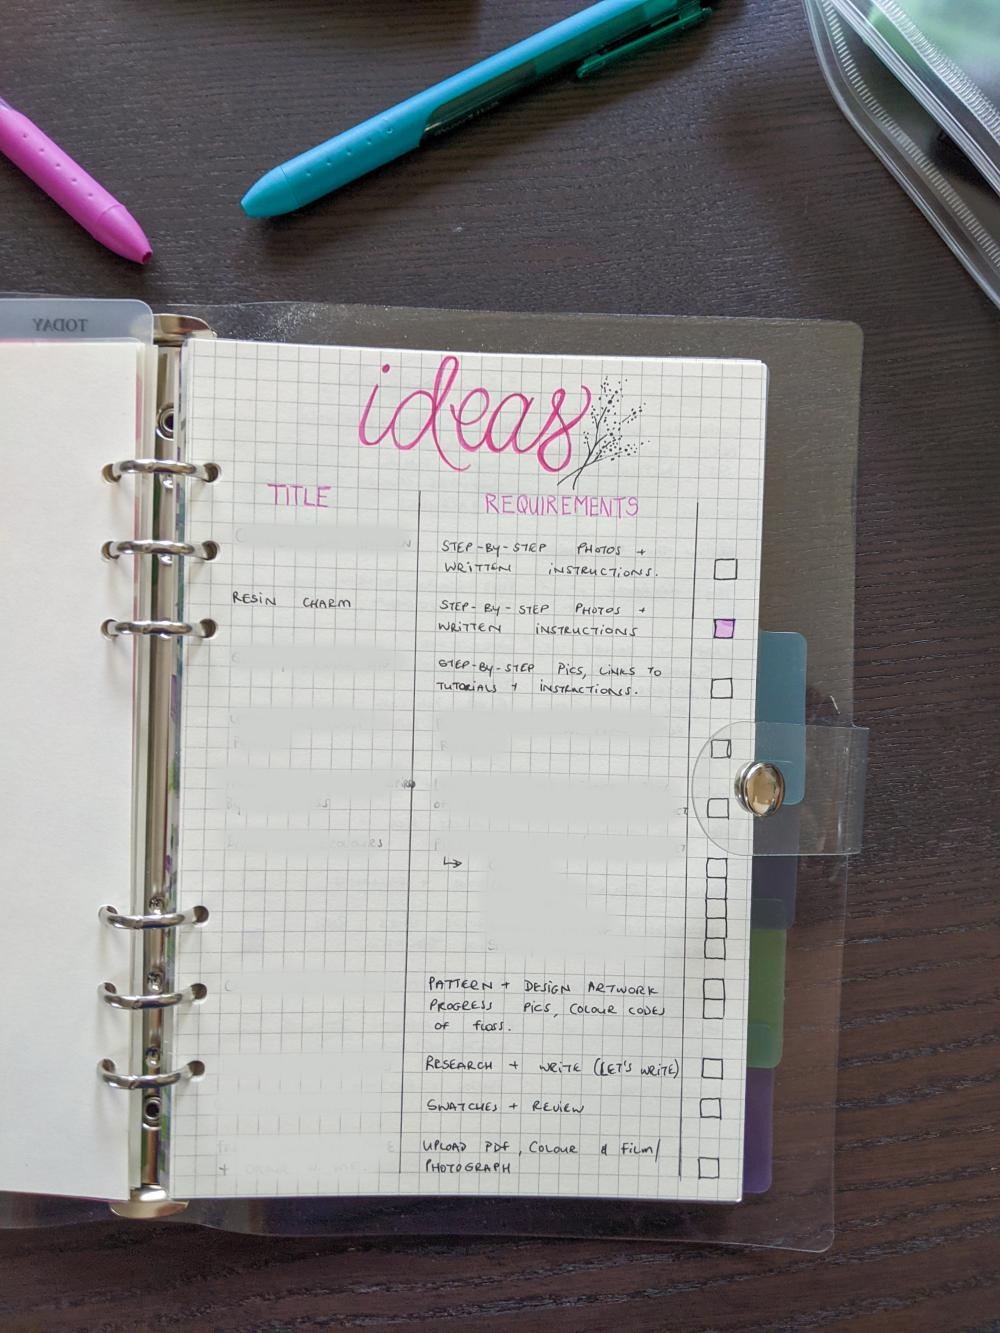 TODAY
ideas
TITLE REQUIREMENTS
STEP-BY-STEP PHOTOS +
WRITTEN INSTRUCTIONS.
RESIN CHARM STEP-BY-STEP PHOTOS +
WRITTEN INSTRUCTIONS
STEP-BY-STEP PICS, LINKS TO
TUTORIALS + INSTRUCTIONS.
COLOURS
PATTERN + DESIGN ARTWORK
PROGRESS PICS, COLOUR CODES
OF FLOSS.
RESEARCH + WRITE (LET'S WRITE)
SWATCHES + REVIEW
UPLOAD PDF, COLOUR & FILM/
PHOTOGRAPH